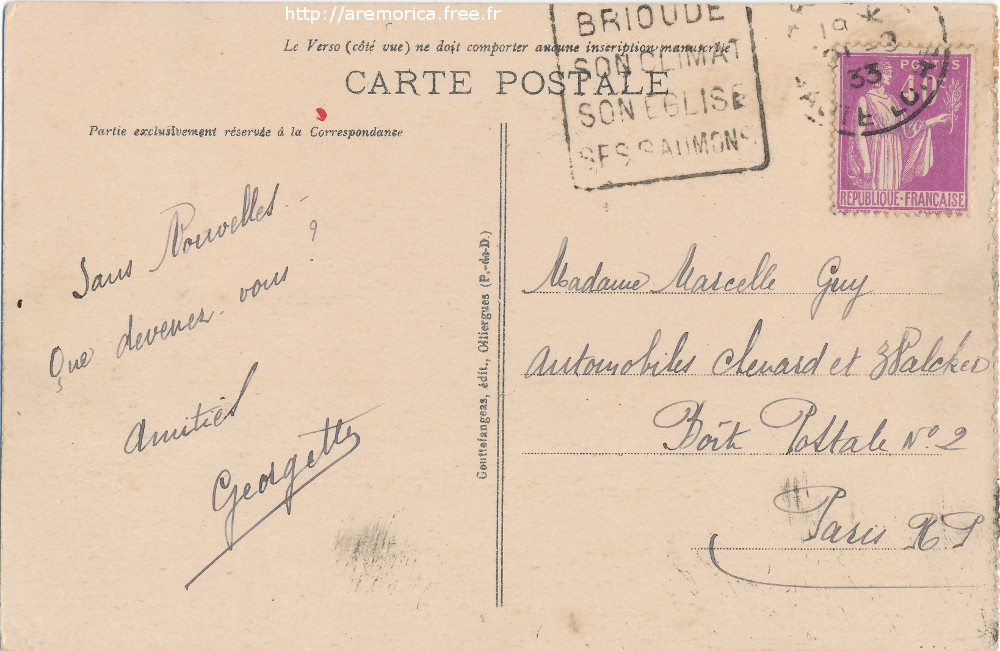 http://aremorica.free.fr
Le Verso (côté vue) ne doit comporter aucune inscription manuscrite
CARTE POSTALE
Partie exclusivement réservée à la Correspondance
BRIOUDE
SON CLIMAT
SON EGLISE
SES SAUMONS
19
33
POSTES
40c
REPUBLIQUE-FRANÇAISE
Sans Nouvelles -
Que devenez-vous ?
Amitiés
Georgette
Gouttefangeas, édit., Olliergues (P.-de-D.)
Madame Marcelle Guy
Automobiles Chenard et Walcker
Boîte Postale N° 2
Paris R P